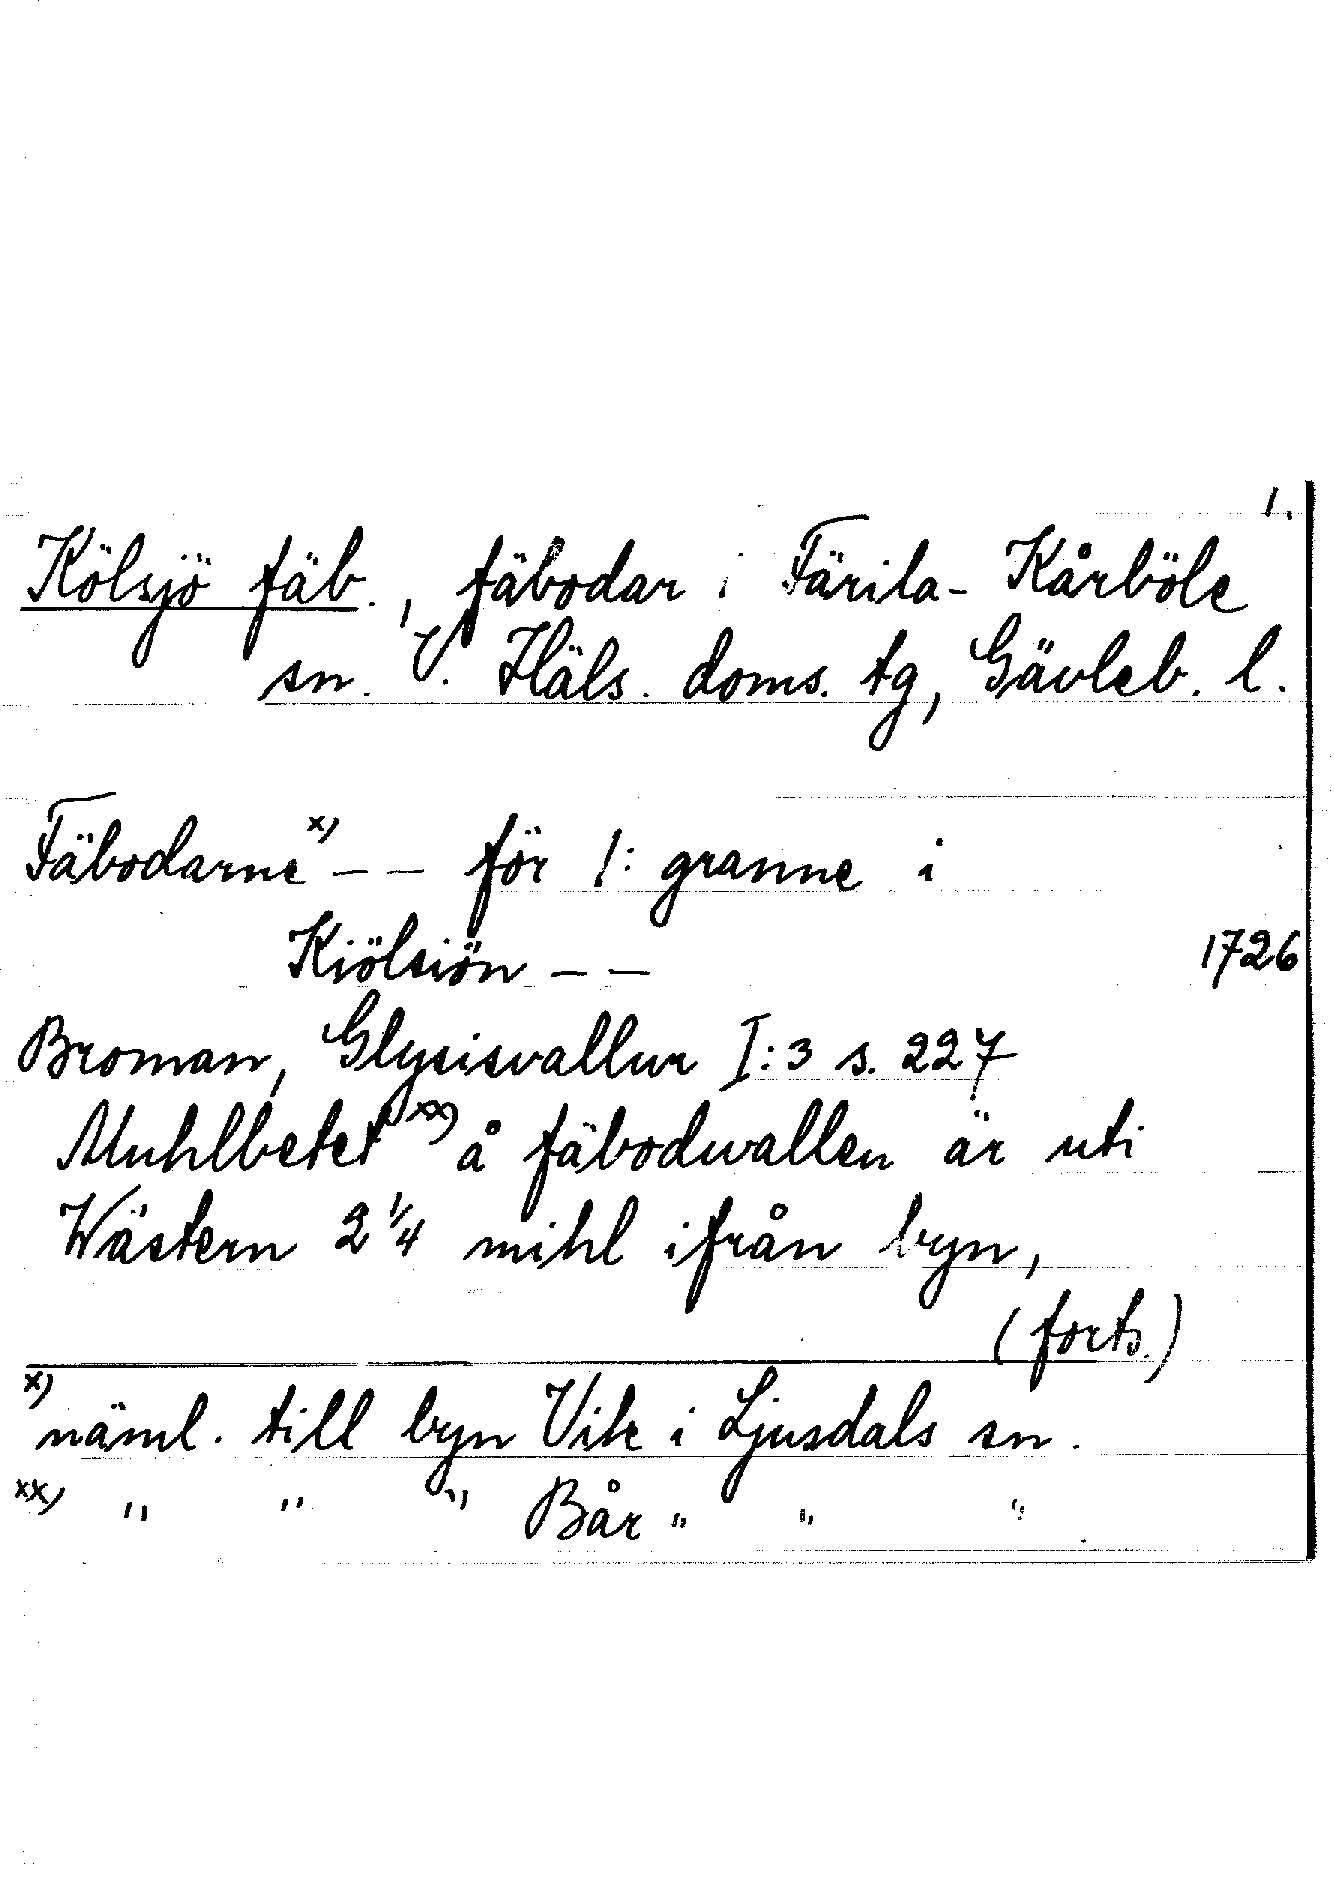 1.
Kölsjö fäb., fäbodar i Färila-Kårböle
sn. V. Häls. doms. tg, Gävleb. l.
Fäbodarne x) — — för 1: granne i
Kiölsiön — — 1726
Broman, Glysisvallur I:3 s. 227
Muhlbetet xx) å fäbodwallen är uti
Wästern 2 1/4 mihl ifrån byn,
(forts.)
x) näml. till byn Vik i Ljusdals sn.
xx) " " " Bår " " "